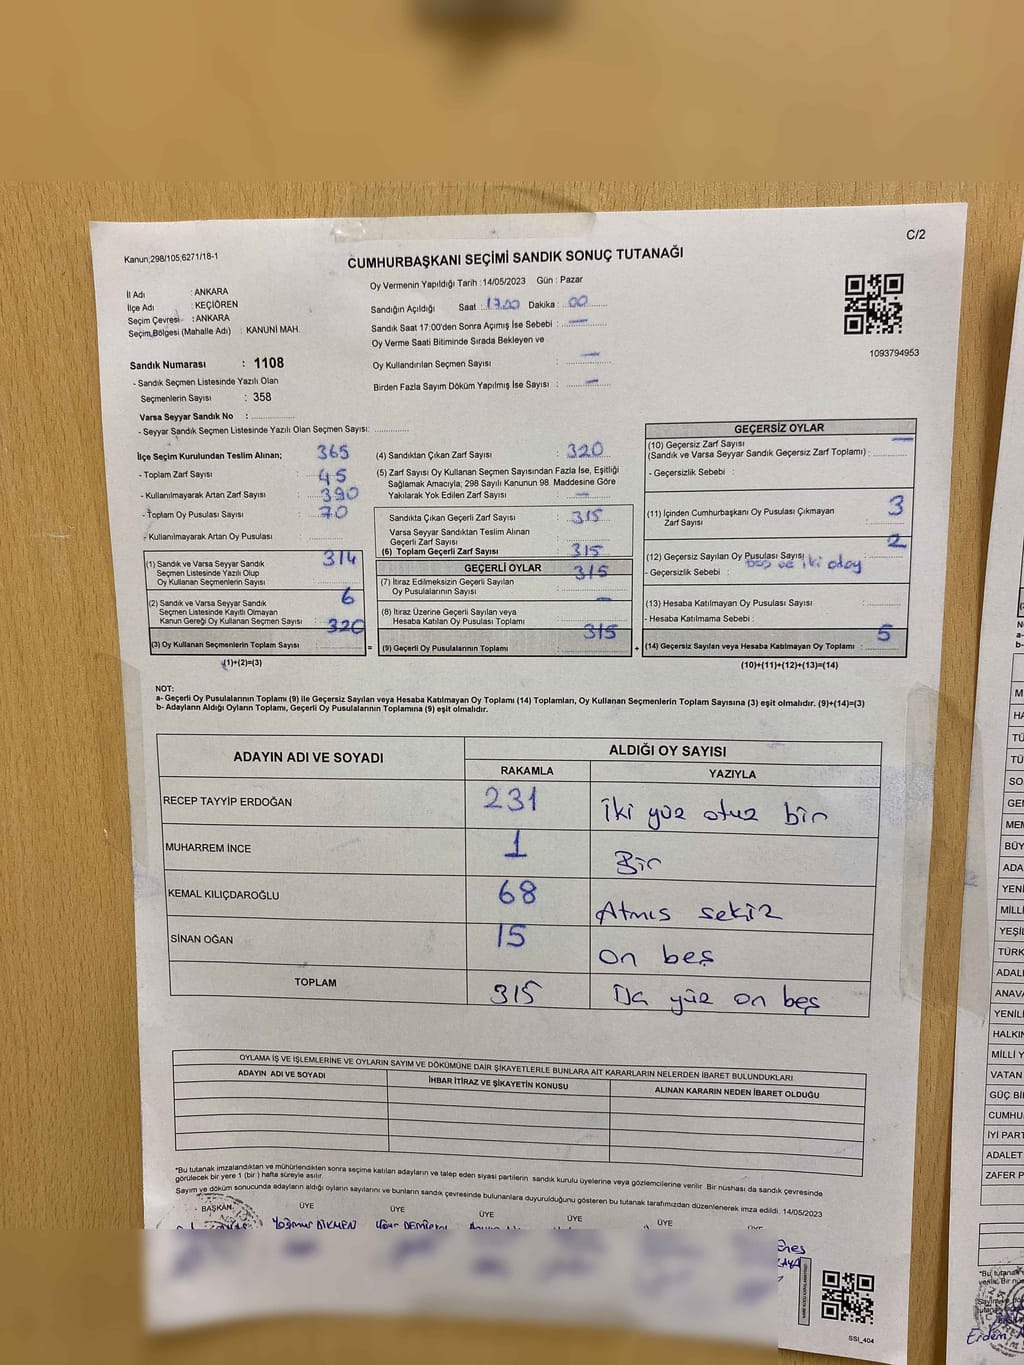 C/2
Kanun;298/105;6271/18-1
CUMHURBAŞKANI SEÇİMİ SANDIK SONUÇ TUTANAĞI
İl Adı : ANKARA
İlçe Adı : KEÇİÖREN
Seçim Çevresi : ANKARA
Seçim Bölgesi (Mahalle Adı) : KANUNİ MAH.
Sandık Numarası : 1108
- Sandık Seçmen Listesinde Yazılı Olan
Seçmenlerin Sayısı : 358
Varsa Seyyar Sandık No :
- Seyyar Sandık Seçmen Listesinde Yazılı Olan Seçmen Sayısı:
Oy Vermenin Yapıldığı Tarih :14/05/2023 Gün : Pazar
Sandığın Açıldığı Saat : 17.00 Dakika : 00
Sandık Saat 17:00'den Sonra Açımış İse Sebebi : —
Oy Verme Saati Bitiminde Sırada Bekleyen ve
Oy Kullandırılan Seçmen Sayısı : —
Birden Fazla Sayım Döküm Yapılmış İse Sayısı : —
1093794953
İlçe Seçim Kurulundan Teslim Alınan; 365
- Toplam Zarf Sayısı 45
- Kullanılmayarak Artan Zarf Sayısı 390
- Toplam Oy Pusulası Sayısı 70
- Kullanılmayarak Artan Oy Pusulası
(1) Sandık ve Varsa Seyyar Sandık 314
Seçmen Listesinde Yazılı Olup
Oy Kullanan Seçmenlerin Sayısı
(2) Sandık ve Varsa Seyyar Sandık 6
Seçmen Listesinde Kayıtlı Olmayan
Kanun Gereği Oy Kullanan Seçmen Sayısı 320
(3) Oy Kullanan Seçmenlerin Toplam Sayısı
(1)+(2)=(3)
(4) Sandıktan Çıkan Zarf Sayısı : 320
(5) Zarf Sayısı Oy Kullanan Seçmen Sayısından Fazla İse, Eşitliği
Sağlamak Amacıyla, 298 Sayılı Kanunun 98. Maddesine Göre
Yakılarak Yok Edilen Zarf Sayısı : —
Sandıkta Çıkan Geçerli Zarf Sayısı : 315
Varsa Seyyar Sandıktan Teslim Alınan
Geçerli Zarf Sayısı
(6) Toplam Geçerli Zarf Sayısı : 315
GEÇERLİ OYLAR
315
(7) İtiraz Edilmeksizin Geçerli Sayılan
Oy Pusulalarının Sayısı
—
(8) İtiraz Üzerine Geçerli Sayılan veya
Hesaba Katılan Oy Pusulası Toplamı
315
= (9) Geçerli Oy Pusulalarının Toplamı
GEÇERSİZ OYLAR
(10) Geçersiz Zarf Sayısı —
(Sandık ve Varsa Seyyar Sandık Geçersiz Zarf Toplamı) :
- Geçersizlik Sebebi :
(11) İçinden Cumhurbaşkanı Oy Pusulası Çıkmayan 3
Zarf Sayısı
2
(12) Geçersiz Sayılan Oy Pusulası Sayısı
- Geçersizlik Sebebi : Boş ve iki aday
(13) Hesaba Katılmayan Oy Pusulası Sayısı
- Hesaba Katılmama Sebebi :
5
+ (14) Geçersiz Sayılan veya Hesaba Katılmayan Oy Toplamı :
(10)+(11)+(12)+(13)=(14)
NOT:
a- Geçerli Oy Pusulalarının Toplamı (9) ile Geçersiz Sayılan veya Hesaba Katılmayan Oy Toplamı (14) Toplamları, Oy Kullanan Seçmenlerin Toplam Sayısına (3) eşit olmalıdır. (9)+(14)=(3)
b- Adayların Aldığı Oyların Toplamı, Geçerli Oy Pusulalarının Toplamına (9) eşit olmalıdır.
ADAYIN ADI VE SOYADI
ALDIĞI OY SAYISI
RAKAMLA YAZIYLA
RECEP TAYYİP ERDOĞAN 231 iki yüz otuz bir
MUHARREM İNCE 1 Bir
KEMAL KILIÇDAROĞLU 68 Atmış sekiz
SİNAN OĞAN 15 on beş
TOPLAM 315 yüz on beş
OYLAMA İŞ VE İŞLEMLERİNE VE OYLARIN SAYIM VE DÖKÜMÜNE DAİR ŞİKAYETLERLE BUNLARA AİT KARARLARIN NELERDEN İBARET BULUNDUKLARI
ADAYIN ADI VE SOYADI İHBAR İTİRAZ VE ŞİKAYETİN KONUSU ALINAN KARARIN NEDEN İBARET OLDUĞU
*Bu tutanak imzalandıktan ve mühürlendikten sonra seçime katılan adayların ve talep eden siyasi partilerin sandık kurulu üyelerine veya gözlemcilerine verilir. Bir nüshası da sandık çevresinde
görülecek bir yere 1 (bir) hafta süreyle asılır.
Sayım ve döküm sonucunda adayların aldığı oyların sayılarını ve bunların sandık çevresinde bulunanlara duyurulduğunu gösteren bu tutanak tarafımızdan düzenlenerek imza edildi. 14/05/2023
BAŞKAN ÜYE ÜYE ÜYE ÜYE ÜYE ÜYE
Yağmur DİKMEN
Enes
SSI_404
TÜRK
SO
BÜY
ADA
YENİ
MİLLİ
YEŞİL
TÜRK
ADAL
ANAVA
YENİL
HALKIN
MİLLİ Y
VATAN
GÜÇ Bİ
CUMHU
İYİ PART
ADALET
ZAFER P
*Bu tutanak
Erdem